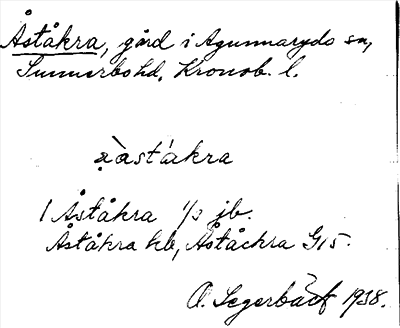 Åståkra, gård i Agunnaryds sn,
Sunnerbo hd, Kronob. l.
1 Åståkra 1/2 jb.
Åståkra kb, Åståckra G15.
O. Segerbäck 1938.